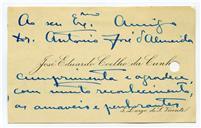 Ao seu Exmo Amigo
Dr. Antonio José d'Almeida
José Eduardo Coelho da Cunha
cumprimenta e agradece,
com muito reconhecimento,
as amaveis e penhorantes
L. Largo de S. Vicente